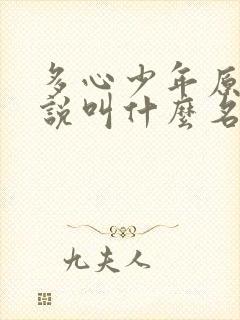 多心少年原
說叫什麼名
九夫人